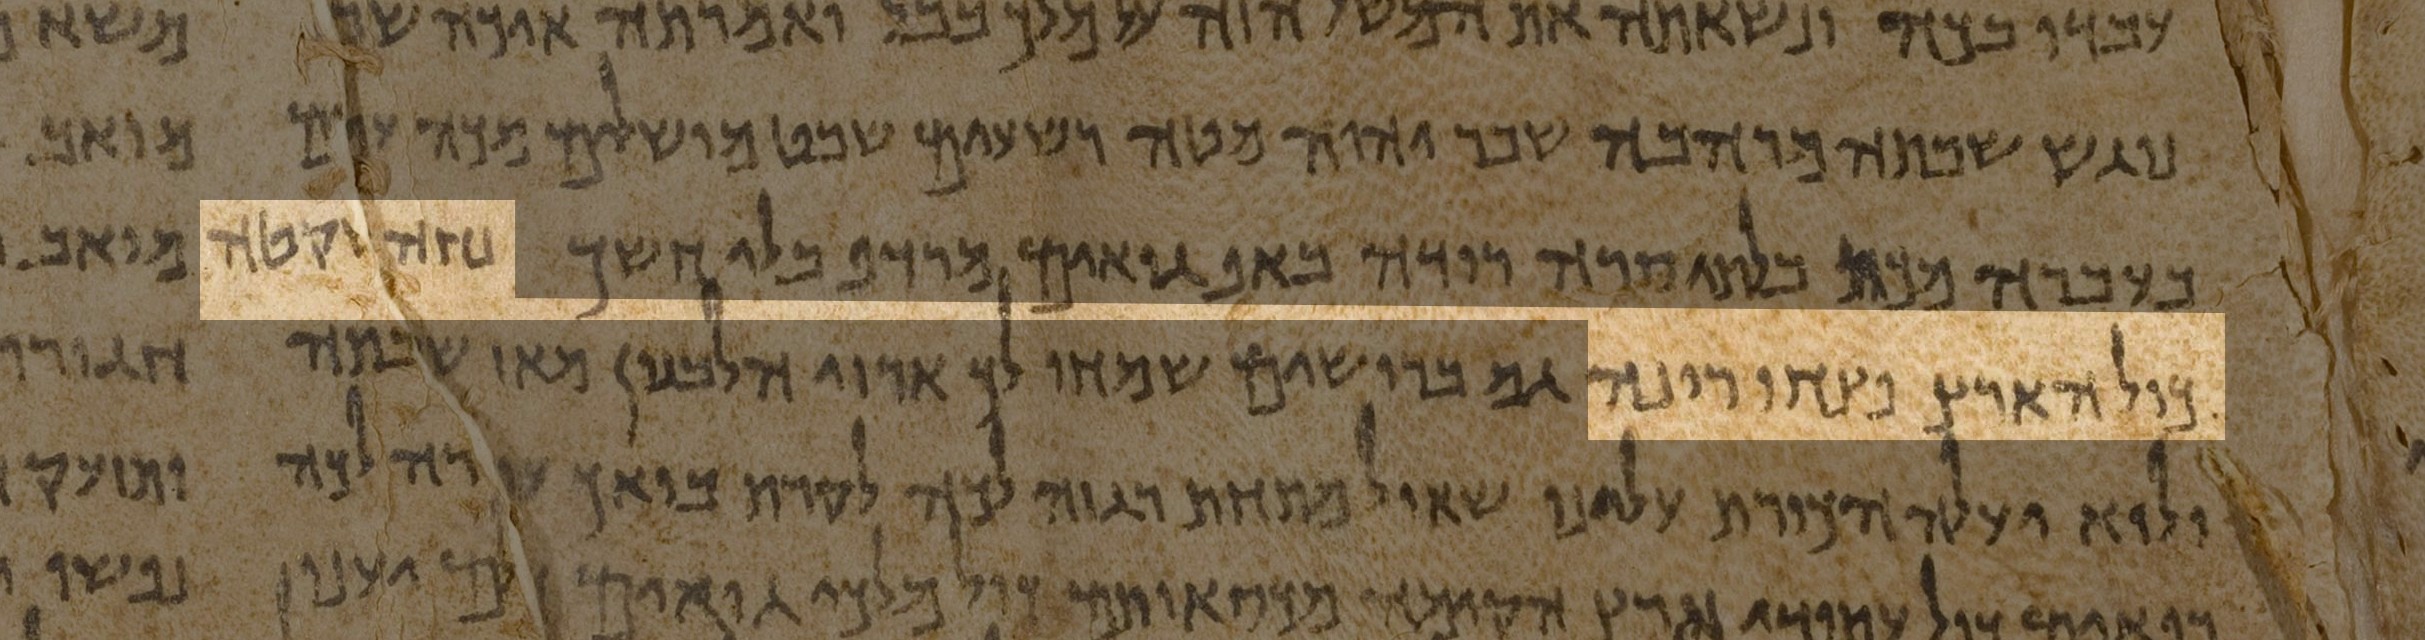 עבדו בכה ונשאתה את המשל הזה על מלך בבל ואמרתה איכה שבת
נגש שבתה מרהבה שבר יהוה מטה רשעים שבט מושלים מכה עמים
בעברה מכת בלתי סרה רודה באף גואים מרדף בלי חשך נחה שקטה
כול הארץ פצחו רינה גם ברושים שמחו לך ארזי הלבנון מאז שכבתה
ולוא יעלה הכורת עלינו שאול מתחת רגזה לכה לקרת בואך עוררה לכה
רפאים כול עתודי ארץ הקימה מכסאותם כול מלכי גואים כולם יענו
משא
מואב
מואב
חגורו
ותזעק
נפשו